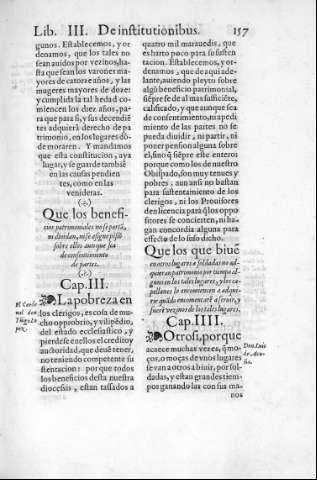 Lib. III. De institutionibus. 157
gunos. Establecemos, y or
denamos, que los tales no
sean auidos por vezinos, has
ta que sean los varones ma
yores de catorze años, y las
mugeres mayores de doze:
y cumplida la tal hedad co-
miencen los diez años, pa-
ra que para si, y sus decendiẽ
tes adquirã derecho de pa
trimonio, en los lugares dõ-
de moraren. Y mandamos
que esta constitucion, aya
lugar, y se guarde tambiẽ
en las causas pendien
tes, como en las
venideras.
Que los benefi-
cios patrimoniales no se partã,
ni diuidan, ni se asigne pẽsiõ
sobre ellos aunque sea
de consentimiento
de partes.
Cap. III.
La pobreza en
los clerigos, es cosa de mu-
cho opprobrio, y vilipẽdio,
del estado ecclesiastico, y
pierdese en ellos el credito y
auctoridad, que deuẽ tener,
no teniendo competente su
stentacion: porque todos
los beneficios desta nuestra
diocesis, estan tassados a
El Carde
nal don
quatro mil marauedis, que
es harto poco para su susten
tacion. Establecemos, y or-
denamos, que de aqui ade-
lante, auiendo pleyto sobre
algũ beneficio patrimonial,
siẽpre se dè al mas sufficiẽte,
calificado, y que aunque sea
de consentimiento, ni a pedi
miento de las partes no se
pueda diuidir, ni partir, ni
poner pension alguna sobre
el, sino q̃ siẽpre este entero
porque como los de nuestro
Obispado, son muy tenues y
pobres, aun ansi no bastan
para sustentamiento de los
clerigos, ni los Prouisores
den licencia para q̃ los oppo
sitores se concierten, ni ha-
gan concordia alguna para
effecto de lo suso dicho.
Que los que biuẽ
en otros lugares a soldadas no ad-
quieran patrimonio por tiempo al-
guno en los tales lugares, y los ca-
pellanes lo comiencen a adqui-
rir quãdo començarẽ a seruir, y
fuerẽ vezinos de los tales lugares.
Cap. IIII.
Otrosi, porque
acaece muchas vezes, q̃ mo-
ços, o moças de vnos lugares
se van a otros a biuir, por sol-
dadas, y estan grandes tiem-
pos ganando las con sus ma-
nos
Don Luis
de Acu-
ña.